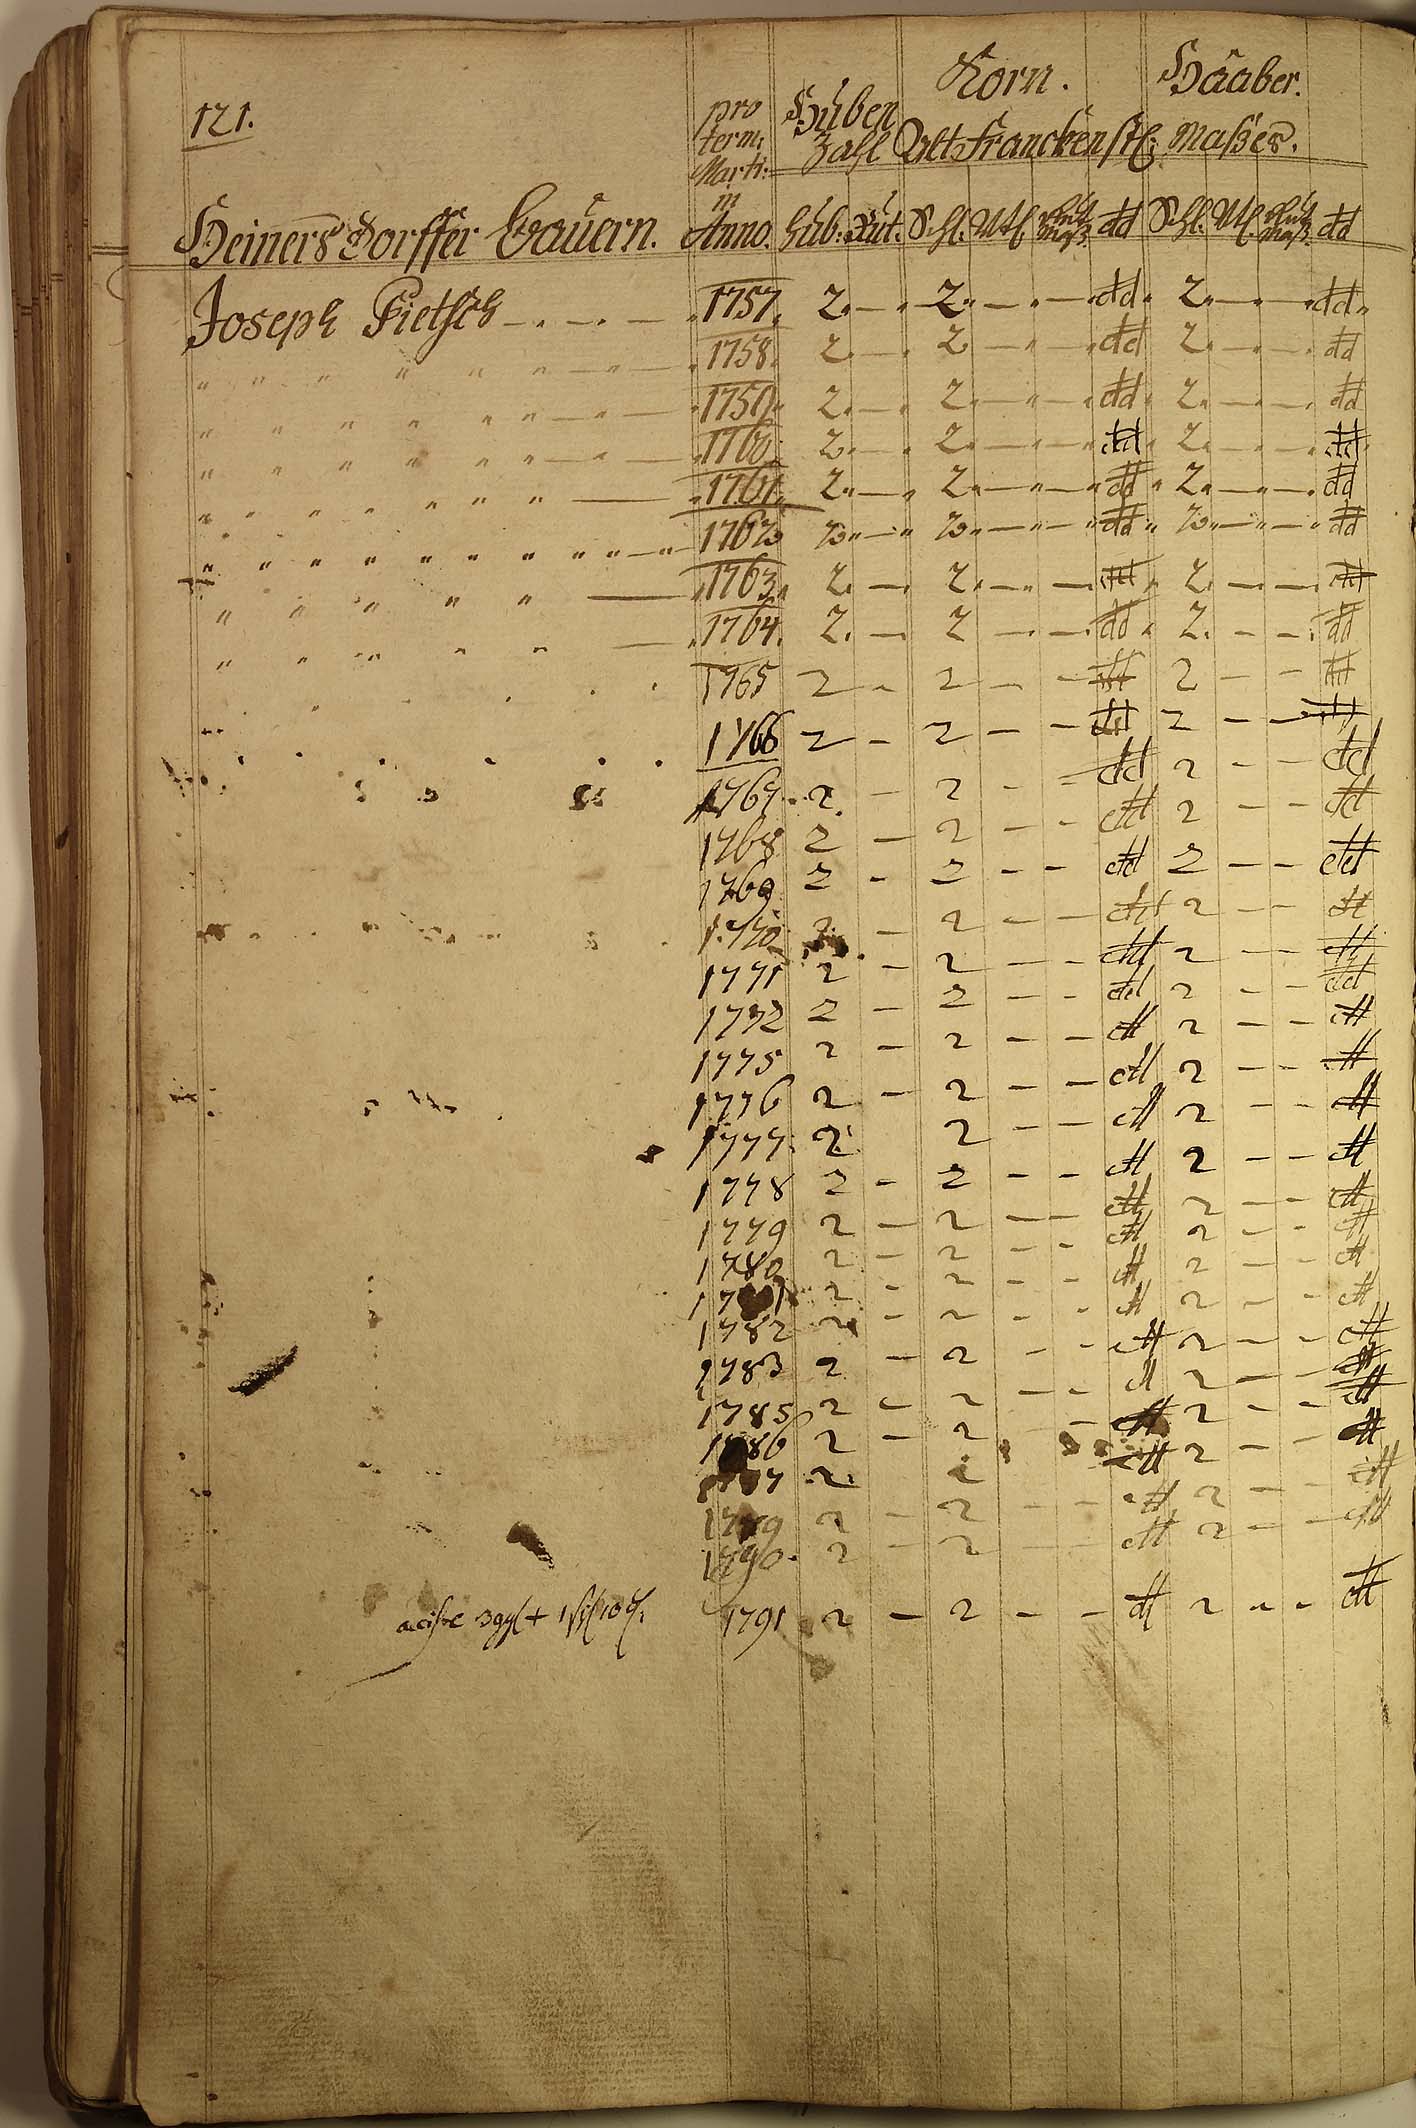 121.
pro term: Marti: in Anno.
Huben Zahl
Korn. Haaber.
Alt Franckenst: Maßes.
Heinersdorffer Bauern.
Hub: Rut. Schl. Vtl. Maß dd Schl. Vtl. Maß dd
Joseph Pietsch 1757. 2. — 2. — — dd. 2. — — dd.
" " " " " " 1758. 2. — 2. — — dd 2. — — dd
" " " " " " 1759. 2. — 2. — — dd 2. — — dd
" " " " " " 1760. 2. — 2. — — dd 2. — — dd
" " " " " " 1761. 2. — 2. — — dd 2. — — dd
" " " " " " 1762 2 — 2 — — dd 2 — — dd
" " " " " 1763. 2. — 2. — — dd 2. — — dd
" " " " " 1764. 2. — 2 — — dd 2. — — dd
1765 2 - 2 — — dd 2 — — dd
1766 2 — 2 — — dd 2 — — dd
1767. 2. — 2 — — dd 2 — — dd
1768 2 — 2 — — dd 2 — — dd
1769 2 - 2 — — dd 2 — — dd
1770 2 — 2 — — dd 2 — — dd
1771 2 — 2 — — dd 2 — — dd
1772 2 — 2 — — dd 2 — — dd
1775 2 — 2 — — dd 2 — — dd
1776 2 — 2 — — dd 2 — — dd
1777. 2. 2 — — dd 2 — — dd
1778 2 - 2 — — dd 2 — — dd
1779 2 — 2 — — dd 2 — — dd
1780 2 — 2 — — dd 2 — — dd
2 — 2 — — dd 2 — — dd
1782 2 — 2 — dd 2 — — dd
1783 2 — 2 — — dd 2 — — dd
1785 2 — 2 — — dd 2 — — dd
1786 2 — 2 — dd 2 — — dd
2. dd 2 — — dd
1789 2 — 2 — — dd 2 — — dd
1790. 2 — 2 — — dd 2 — — dd
1791 2 — 2 — — dd 2 — — dd